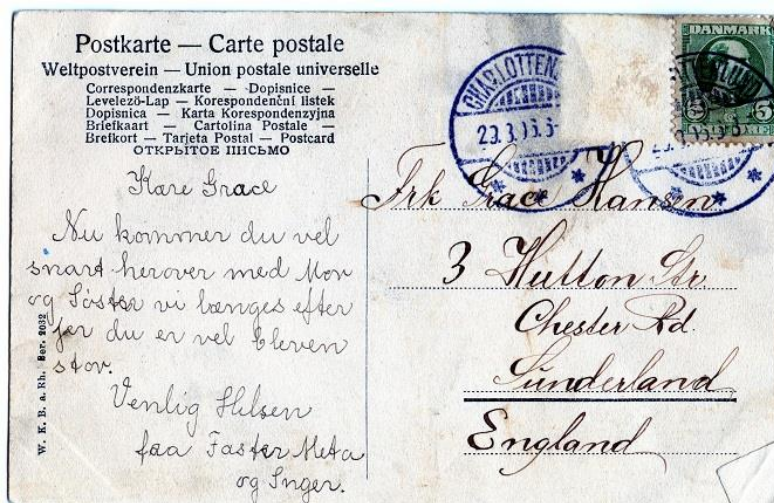 Postkarte — Carte postale
Weltpostverein — Union postale universelle
Correspondenzkarte — Dopisnice —
Levelező-Lap — Korespondenční listek
Dopisnica — Karta Korespondenzyjna
Briefkaart — Cartolina Postale —
Brefkort — Tarjeta Postal — Postcard
ОТКРЫТОЕ ПИСЬМО
Kære Grace
Nu kommer du vel
snart herover med Mor
og Søster vi længes efter
jer du er vel bleven
stor.
Venlig Hilsen
fra Faster Meta
og Inger.
W. K. B. a. Rh. Ser. 2032
CHARLOTTEN
DANMARK
5 5
Frk Grace Hansen
3 Hutton Str.
Chester Rd.
Sunderland
England